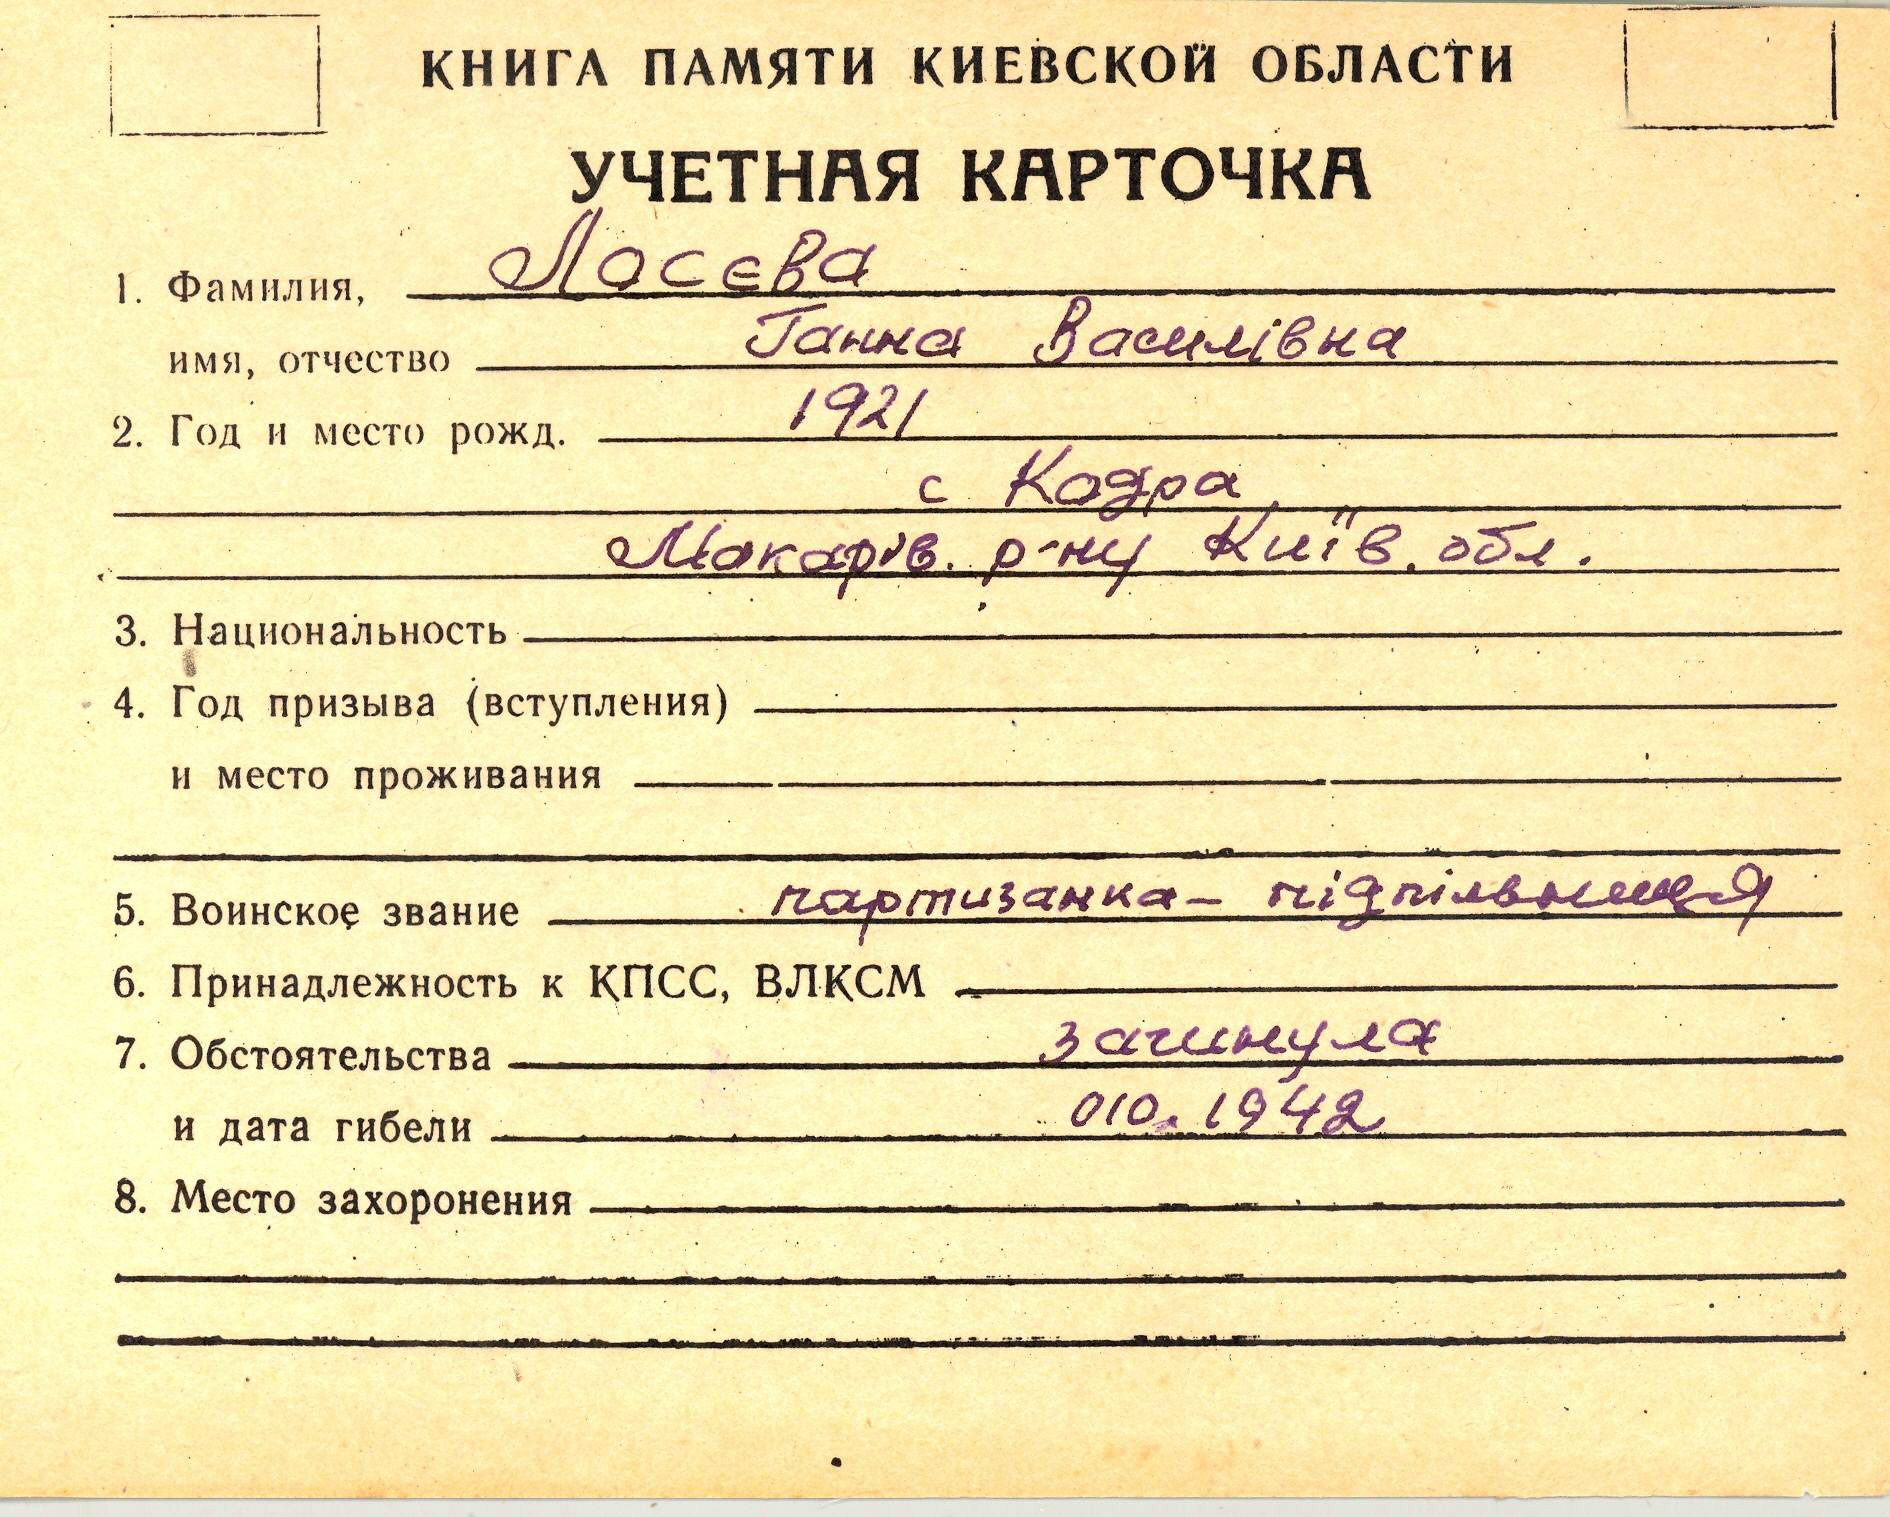 КНИГА ПАМЯТИ КИЕВСКОЙ ОБЛАСТИ
УЧЕТНАЯ КАРТОЧКА
1. Фамилия, Лосєва
имя, отчество Ганна Василівна
2. Год и место рожд. 1921
с Кодра
Макарів. р-ну Київ. обл.
3. Национальность
4. Год призыва (вступления)
и место проживания
5. Воинское звание партизанка - підпільниця
6. Принадлежность к КПСС, ВЛКСМ
7. Обстоятельства загинула
и дата гибели 010. 1942
8. Место захоронения